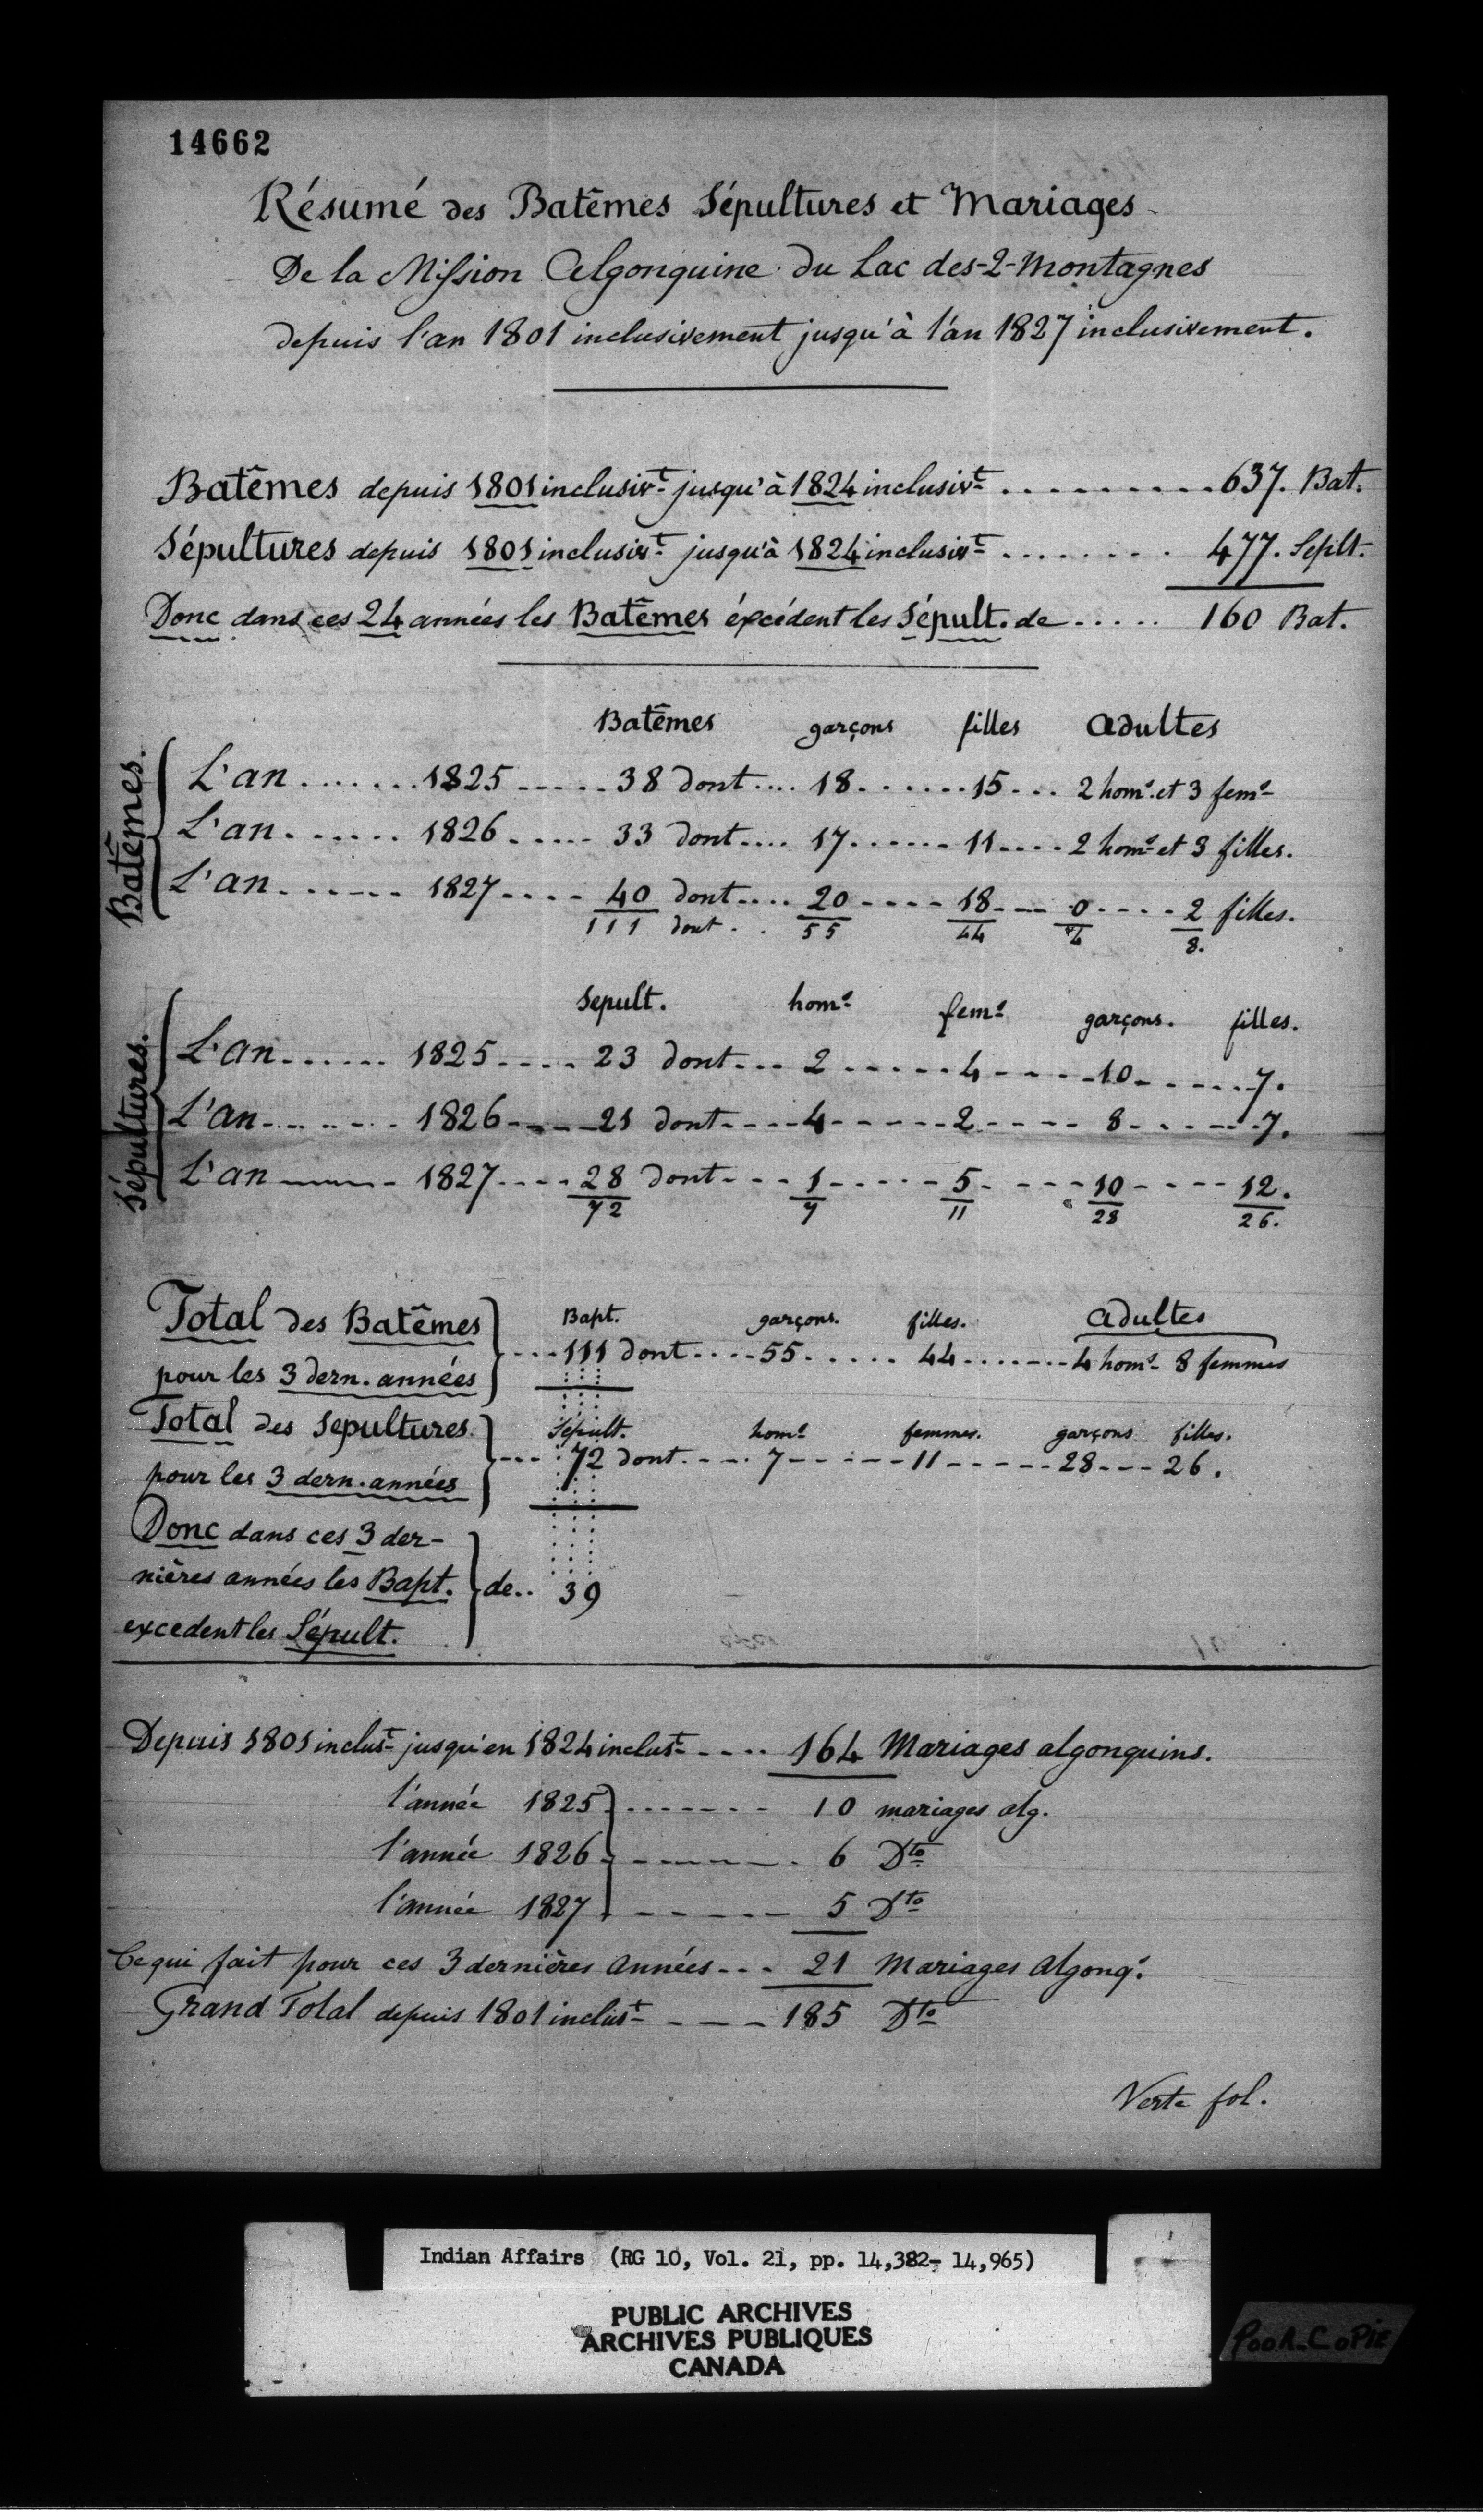 14662
Résumé des Batêmes Sépultures et Mariages
De la Mission Algonquine du Lac des-2-Montagnes
depuis l'an 1801 inclusivement jusqu'à l'an 1827 inclusivement.
Batêmes depuis 1801 inclusivt jusqu'à 1824 inclusivt ......... 637. Bat.
Sépultures depuis 1801 inclusivt jusqu'à 1824 inclusivt ........ 477. Seplt.
Donc dans ces 24 années les Batêmes éxcédent les Sépult. de ..... 160 Bat.
Batêmes garçons filles Adultes
Batêmes.
L'an ....... 1825 ..... 38 dont .... 18 ....... 15 ... 2 homs. et 3 fems
L'an ...... 1826 ..... 33 dont .... 17 ...... 11 .... 2 homs et 3 filles.
L'an ...... 1827 .... 40 dont .... 20 .... 18 ... 0 .... 2 filles.
111 dont .. 55 44 4 8.
Sepult. homs fems garçons. filles.
Sépultures.
L'an ...... 1825 .... 23 dont ... 2 ..... 4 .... 10 ...... 7.
L'an ....... 1826 .... 21 dont .... 4 ...... 2 ..... 8 ...... 7.
L'an ...... 1827 .... 28 dont ... 1 ..... 5 .... 10 .... 12.
72 7 11 28 26.
Total des Batêmes
pour les 3 dern. années
Bapt. garçons. filles. Adultes
... 111 dont .... 55 ..... 44 ...... 4 homs 8 femmes
Total des Sepultures
pour les 3 dern. années
Sépult. homs femmes. garçons filles.
... 72 dont .... 7 ..... 11 ..... 28 ... 26.
Donc dans ces 3 der-
nières années les Bapt. de.. 39
excedent les Sépult.
Depuis 1801 inclust jusqu'en 1824 inclust .... 164 Mariages algonquins.
l'année 1825 ....... 10 mariages alg.
l'année 1826 ....... 6 Dto
l'année 1827 ...... 5 Dto
Ce qui fait pour ces 3 dernières années ... 21 Mariages Algonqs.
Grand Total depuis 1801 inclust .... 185 Dto
Verte fol.
Indian Affairs (RG 10, Vol. 21, pp. 14,382- 14,965)
PUBLIC ARCHIVES
ARCHIVES PUBLIQUES
CANADA
POOR COPIE